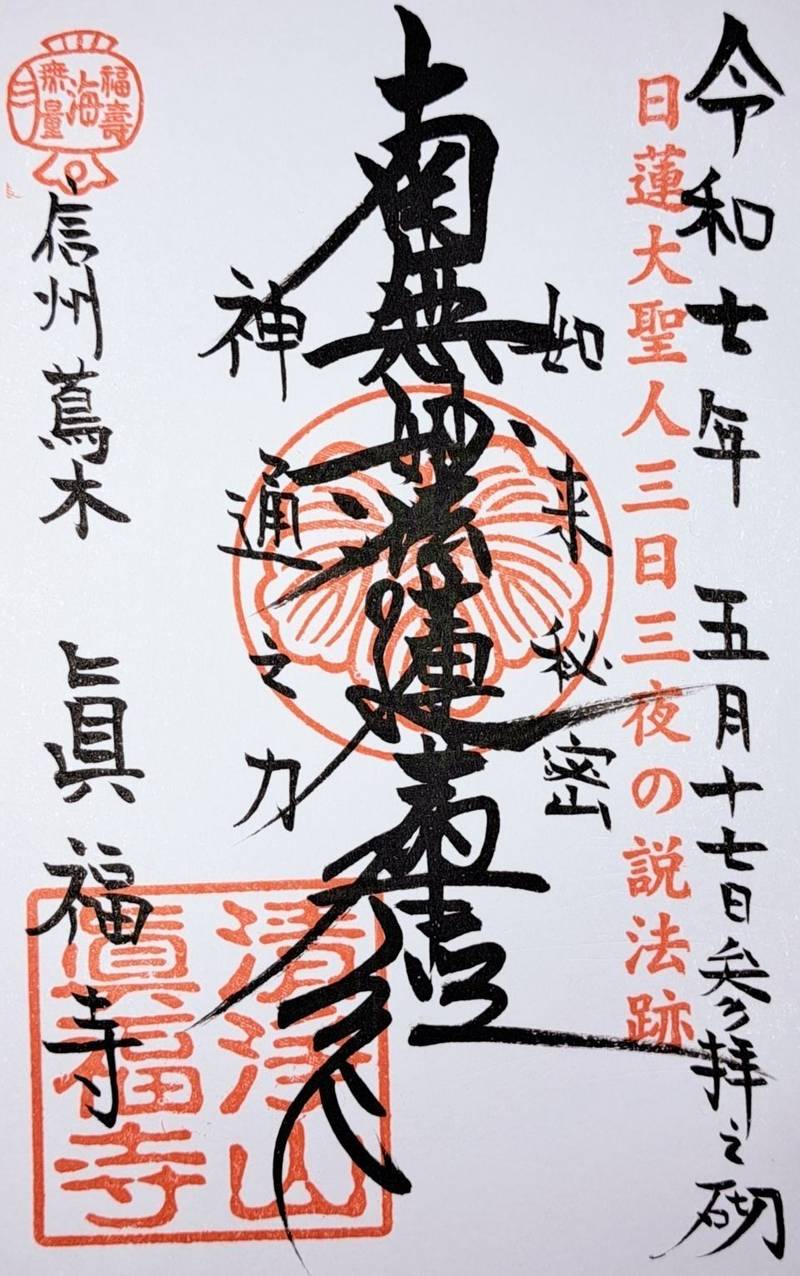 令和七年 五月十七日参拝之砌
日蓮大聖人三日三夜の説法跡
如来秘密
南無妙法蓮華経
神通之力
福壽
海
無量
信州蔦木 眞福寺
清浄山
眞福寺